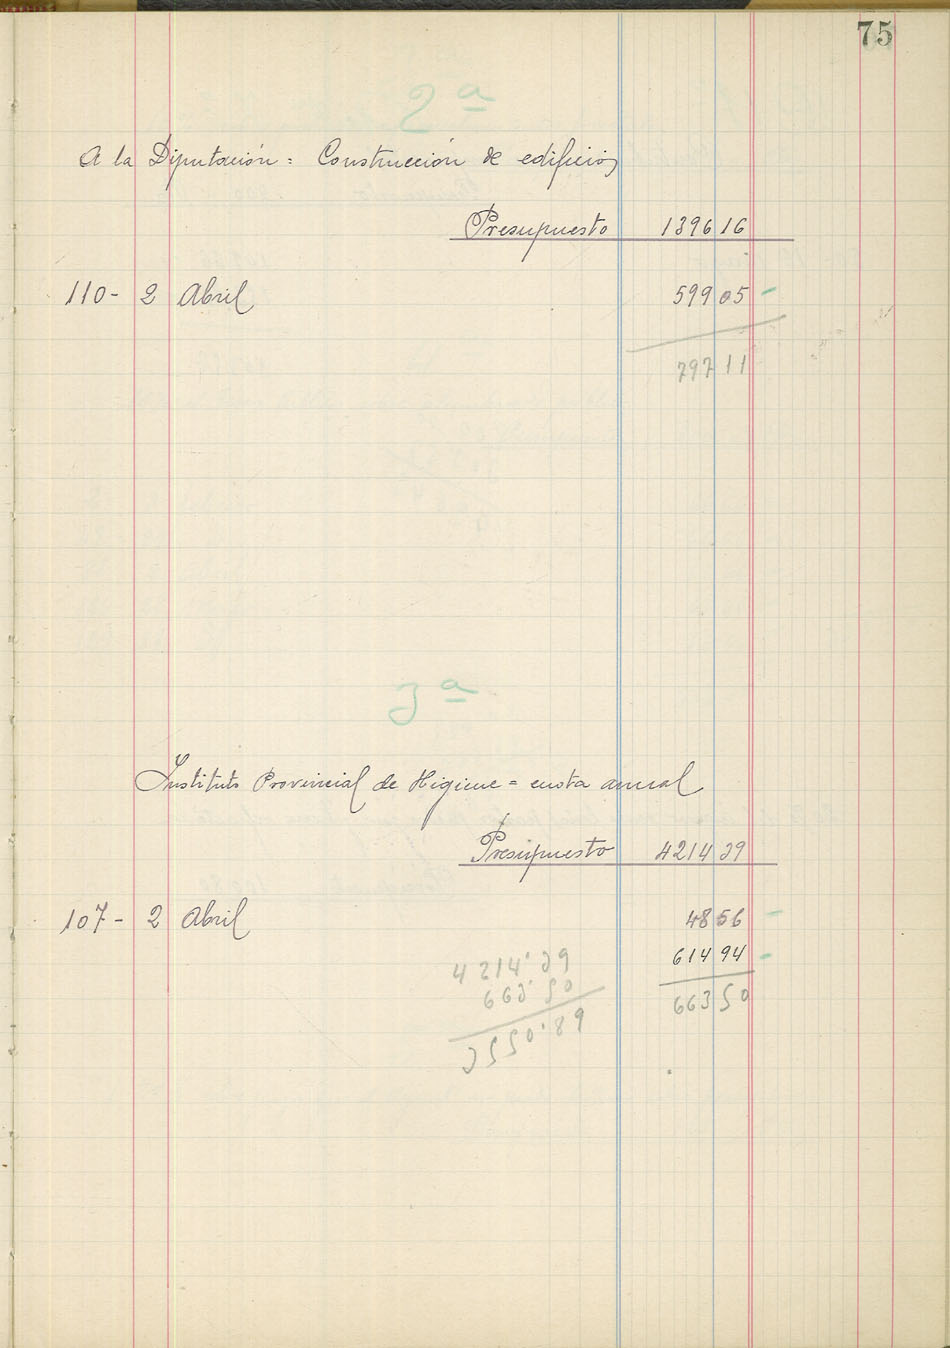 75
2ª
A la Diputación = Construcción de edificios
Presupuesto 1396 16
110 - 2 Abril 599 05 -
797 11
3ª
Instituto Provincial de Higiene = cuota anual
Presupuesto 4214 39
107 - 2 Abril 48 56 -
614 94 -
663 50
4214'39
663'50
3550'89